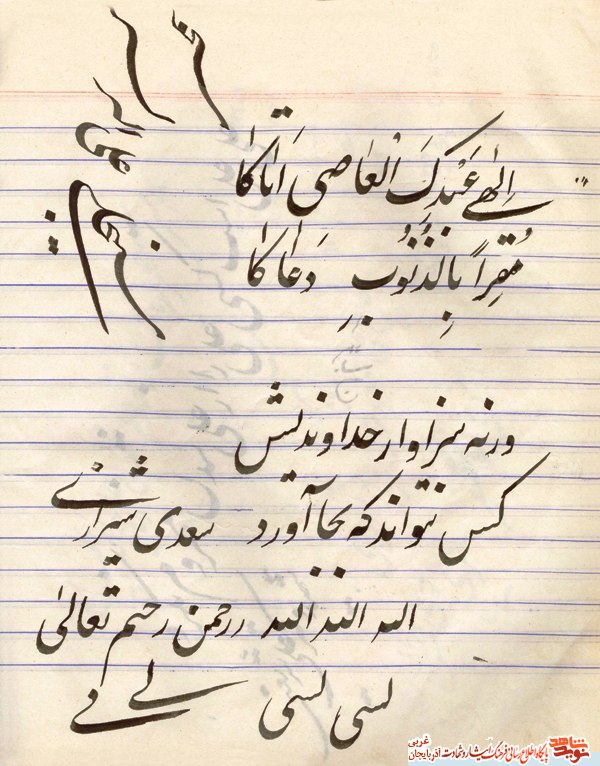 الٰهی عَبْدِکَ الْعٰاصی اَتٰاکٰا
مُقِراً بِالذُنُوُبِ دَعٰاکٰا
ورنه سزاوار خداوندیش
کس نتواند که بجا آورد سعدی شیرازی
الله الله الله رحمن رحیم تعالیٰ
لسی لسی
نوید شاهد
پایگاه اطلاع رسانی فرهنگ ایثار و شهادت آذربایجان غربی